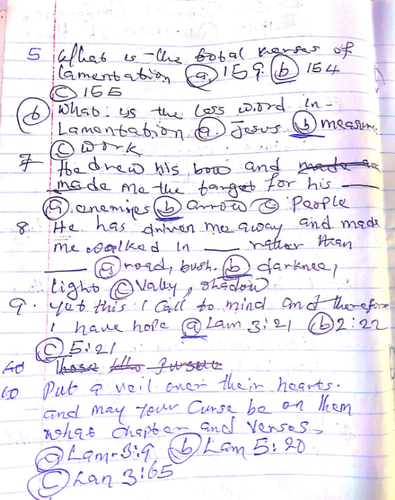 5 What is the total verses of
Lamentation (a) 159 (b) 154
(c) 155
(6) What is the less word in
Lamentation (a) Jesus (b) measure
(c) work
7 He drew his bow and made
made me the target for his ___
(a) enemies (b) arrow (c) People
8. He has driven me away and made
me walked in ___ rather than
___ (a) road, bush. (b) darknee,
light (c) Vally, shadow
9. Yet this I Call to mind and therefore
I have hope (a) Lam 3:21 (b) 2:22
(c) 5:21
10 Those who
10 Put a veil over their hearts.
and may your Curse be on them
what chapter and Verses.
(a) Lam. 3:9 (b) Lam 5:20
(c) Lan 3:65